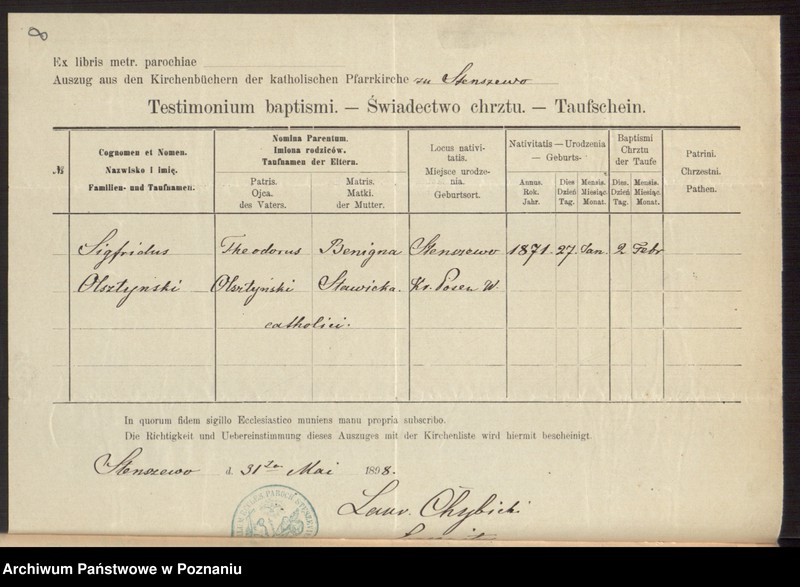 8
Ex libris metr. parochiae
Auszug aus den Kirchenbüchern der katholischen Pfarrkirche zu Stenszewo
Testimonium baptismi. — Świadectwo chrztu. — Taufschein.
№
Cognomen et Nomen.
Nazwisko i imię.
Familien- und Taufnamen.
Nomina Parentum.
Imiona rodziców.
Taufnamen der Eltern.
Patris.
Ojca.
des Vaters.
Matris.
Matki.
der Mutter.
Locus nativi-
tatis.
Miejsce urodze-
nia.
Geburtsort.
Nativitatis — Urodzenia
— Geburts-
Annus.
Rok.
Jahr.
Dies
Dzień
Tag.
Mensis.
Miesiąc.
Monat.
Baptismi
Chrztu
der Taufe
Dies.
Dzień
Tag.
Mensis.
Miesiąc.
Monat.
Patrini.
Chrzestni.
Pathen.
Sigfridus Theodorus Benigna Stenszewo 1871. 27. Jan. 2 Febr
Olsztyński Olsztyński Sławicka. Kr. Posen W.
catholici.
In quorum fidem sigillo Ecclesiastico muniens manu propria subscribo.
Die Richtigkeit und Uebereinstimmung dieses Auszuges mit der Kirchenliste wird hiermit bescheinigt.
Stenszewo d. 31ten Mai 1898.
Laur. Chybicki
Archiwum Państwowe w Poznaniu